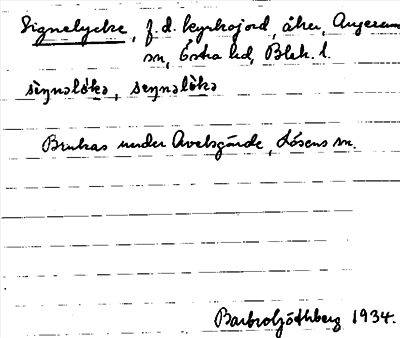 Signelycke, f.d. kyrkojord, åker, Augerum
sn, Östra hd, Blek. l.
sìŋnəlö̀kə, seŋnəlö̀kə
Brukas under Avelsgärde, Lösens sn.
Barbro Göthberg 1934.